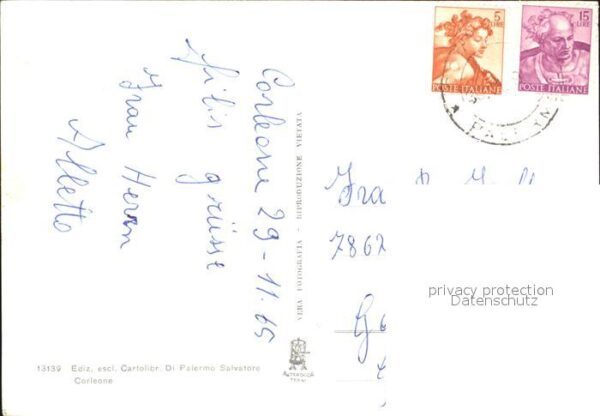 5
LIRE
POSTE ITALIANE
15
LIRE
POSTE ITALIANE
Corleone 29-11.65
grüsse
Frau Heron
Alletto
VERA FOTOGRAFIA - RIPRODUZIONE VIETATA
Fra
7867
privacy protection
Datenschutz
13139 Ediz. escl. Cartolibr. Di Palermo Salvatore
Corleone